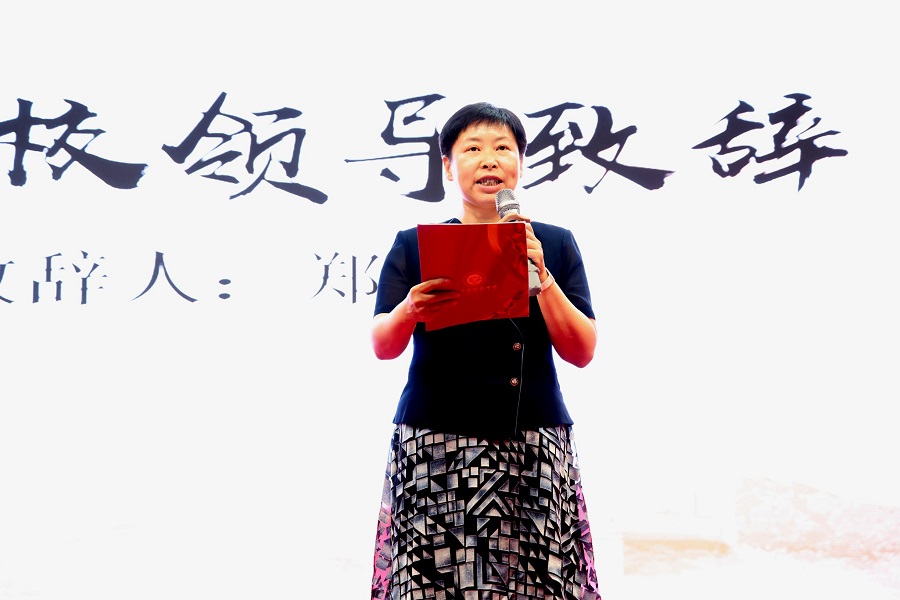 校领导致辞
致辞人：郑